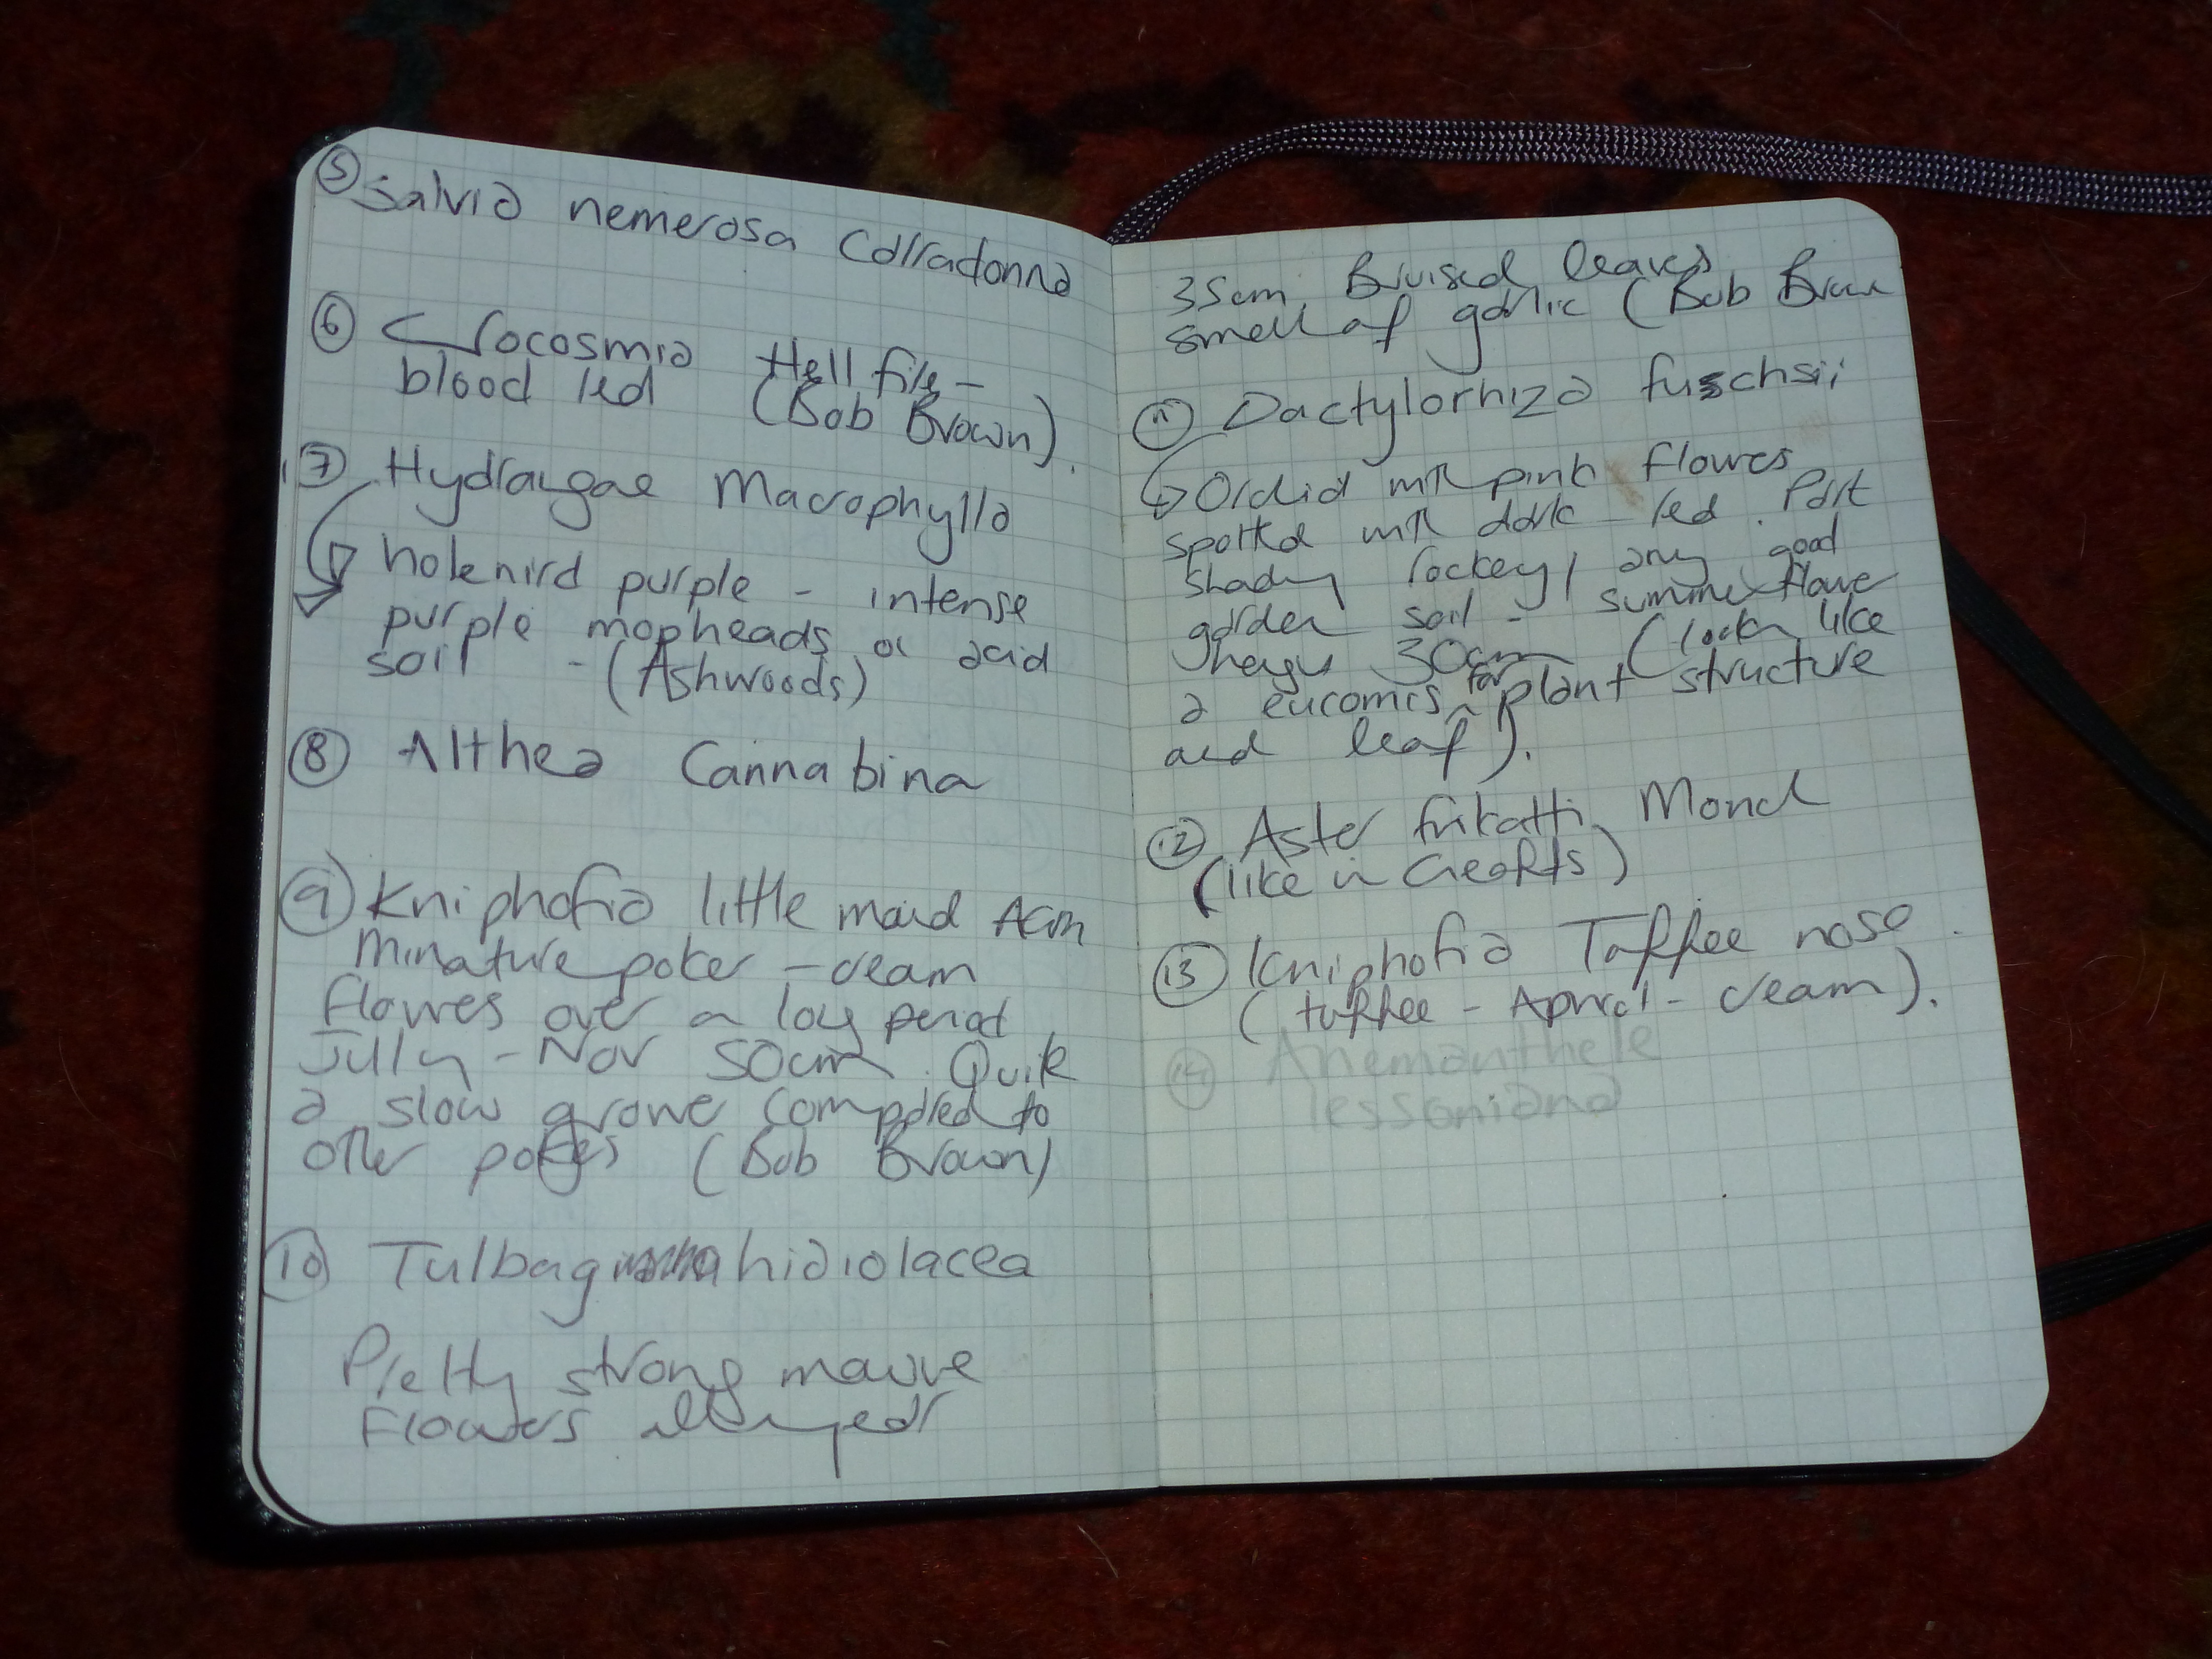 5 Salvia nemerosa Caradonna
6 Crocosmia Hell fire -
blood red (Bob Brown).
7 Hydrangae Macrophylla
purple - intense
purple mopheads on acid
soil - (Ashwoods)
8 Althea Cannabina
9 Kniphofia little maid
Minature poker - cream
flowers over a long period
July - Nov 50cm. Quite
a slow grower compared to
other pokers (Bob Brown)
10 Tulbaghia violacea
Pretty strong mauve
Flowers all year
35cm. Bruised leaves
smell of garlic (Bob Brown
11 Dactylorhiza fuschsii
Orchid with pink flowers
spotted with dark red. Part
shady rockery / any good
garden soil - summer flower
30cm (looks like
a eucomis for plant structure
and leaf).
12 Aster frikatti Monch
(like in Geoffs)
13 Kniphofia Toffee nose.
(toffee - Apricot - cream).
14 Anemanthele
lessoniana